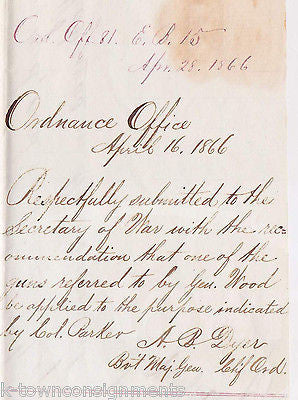 Ord. Off. 81. E. B. 15
Apr. 28. 1866
Ordnance Office
April 16, 1866
Respectfully submitted to the
Secretary of War with the rec-
ommendation that one of the
guns referred to by Gen. Wood
be applied to the purpose indicated
by Col. Parker
A. B. Dyer
Bvt Maj. Gen. Chf Ord.
k-townconsignments